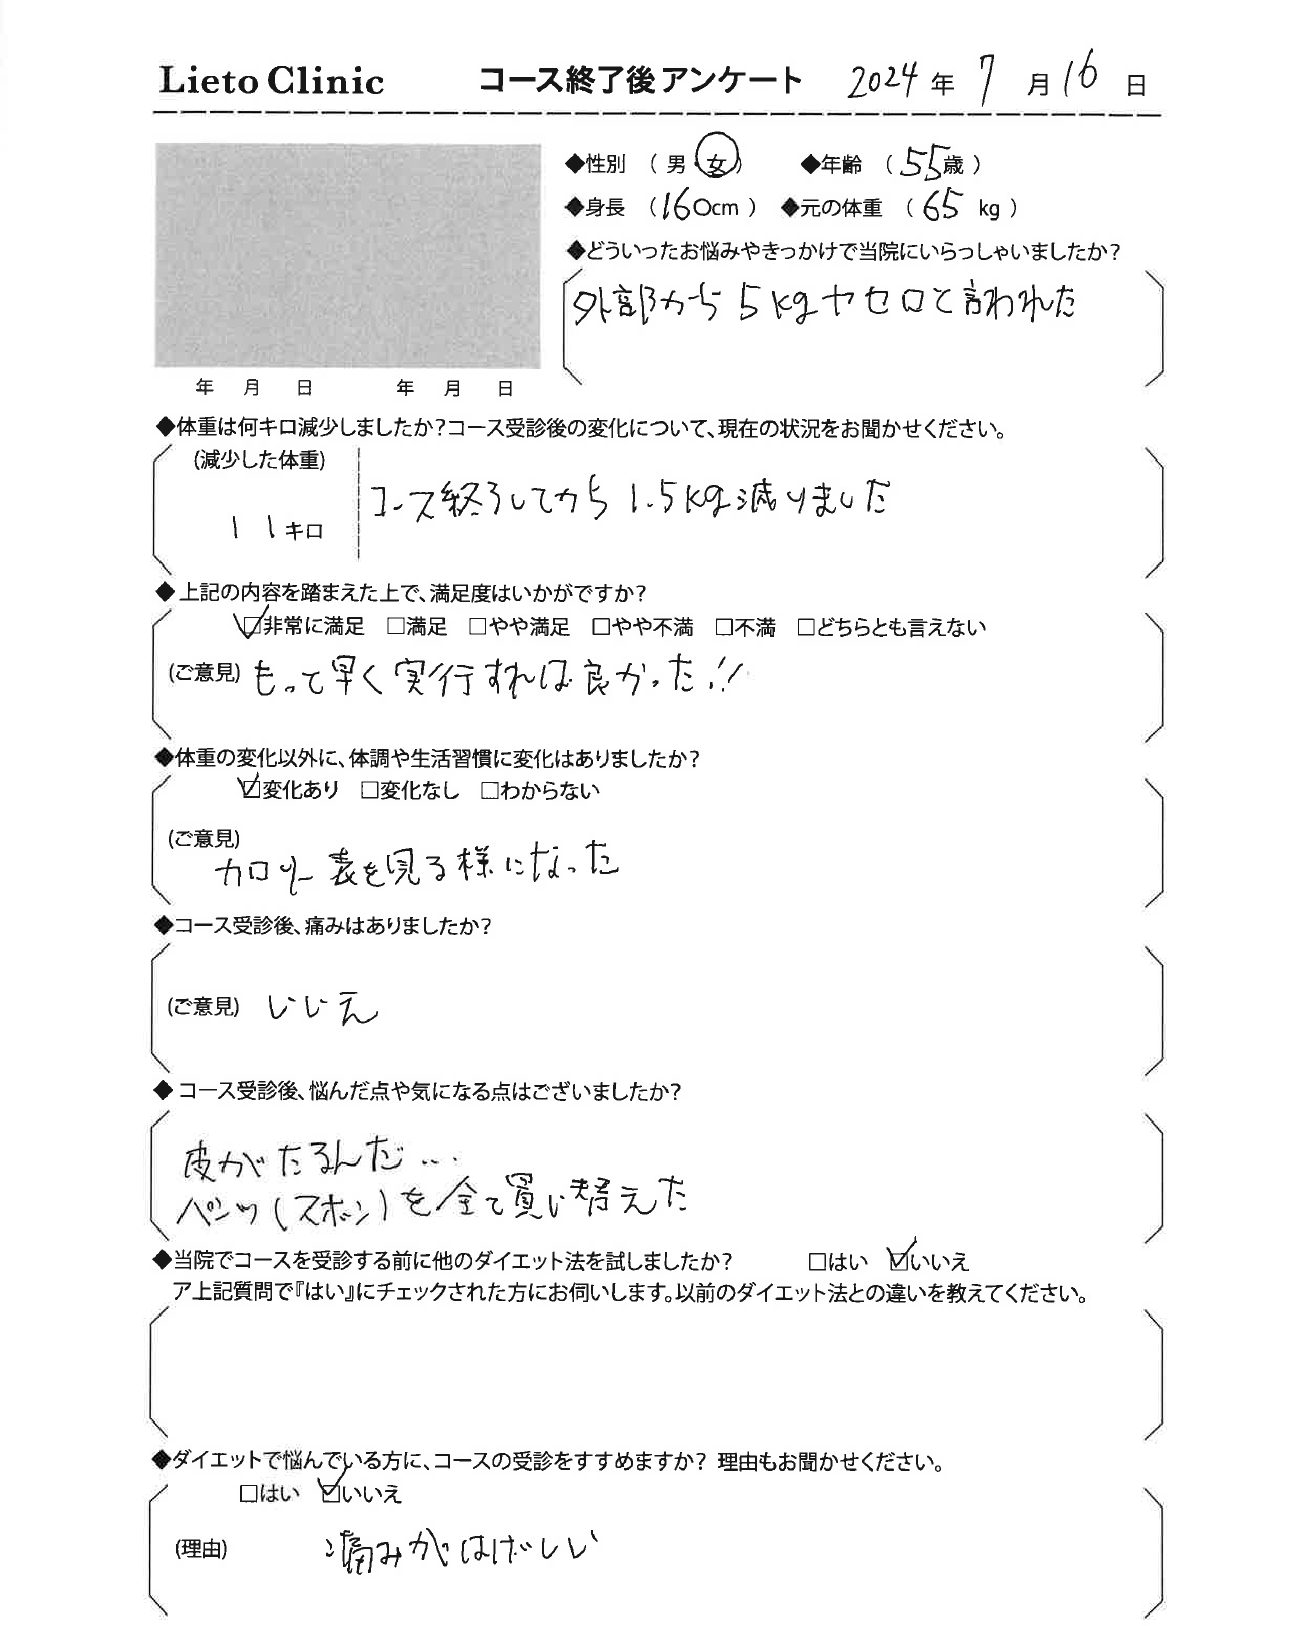 Lieto Clinic コース終了後アンケート 2024年 7月 16日
◆性別 (男・女) ◆年齢 (55歳)
◆身長 (160cm) ◆元の体重 (65 kg)
◆どういったお悩みやきっかけで当院にいらっしゃいましたか?
外部から5kgヤセロと言われた
年 月 日 年 月 日
◆体重は何キロ減少しましたか?コース受診後の変化について、現在の状況をお聞かせください。
(減少した体重)
コース終了してから1.5kg減りました
11キロ
◆上記の内容を踏まえた上で、満足度はいかがですか?
☑非常に満足 □満足 □やや満足 □やや不満 □不満 □どちらとも言えない
(ご意見) もって早く実行すれば良かった!!
◆体重の変化以外に、体調や生活習慣に変化はありましたか?
☑変化あり □変化なし □わからない
(ご意見)
カロリー表を見る様になった
◆コース受診後、痛みはありましたか?
(ご意見) いいえ
◆コース受診後、悩んだ点や気になる点はございましたか?
皮がたるんだ…
パンツ(スボン)を全て買い替えた
◆当院でコースを受診する前に他のダイエット法を試しましたか? □はい ☑いいえ
ア上記質問で『はい』にチェックされた方にお伺いします。以前のダイエット法との違いを教えてください。
◆ダイエットで悩んでいる方に、コースの受診をすすめますか? 理由もお聞かせください。
□はい ☑いいえ
(理由) 痛みがはげしい